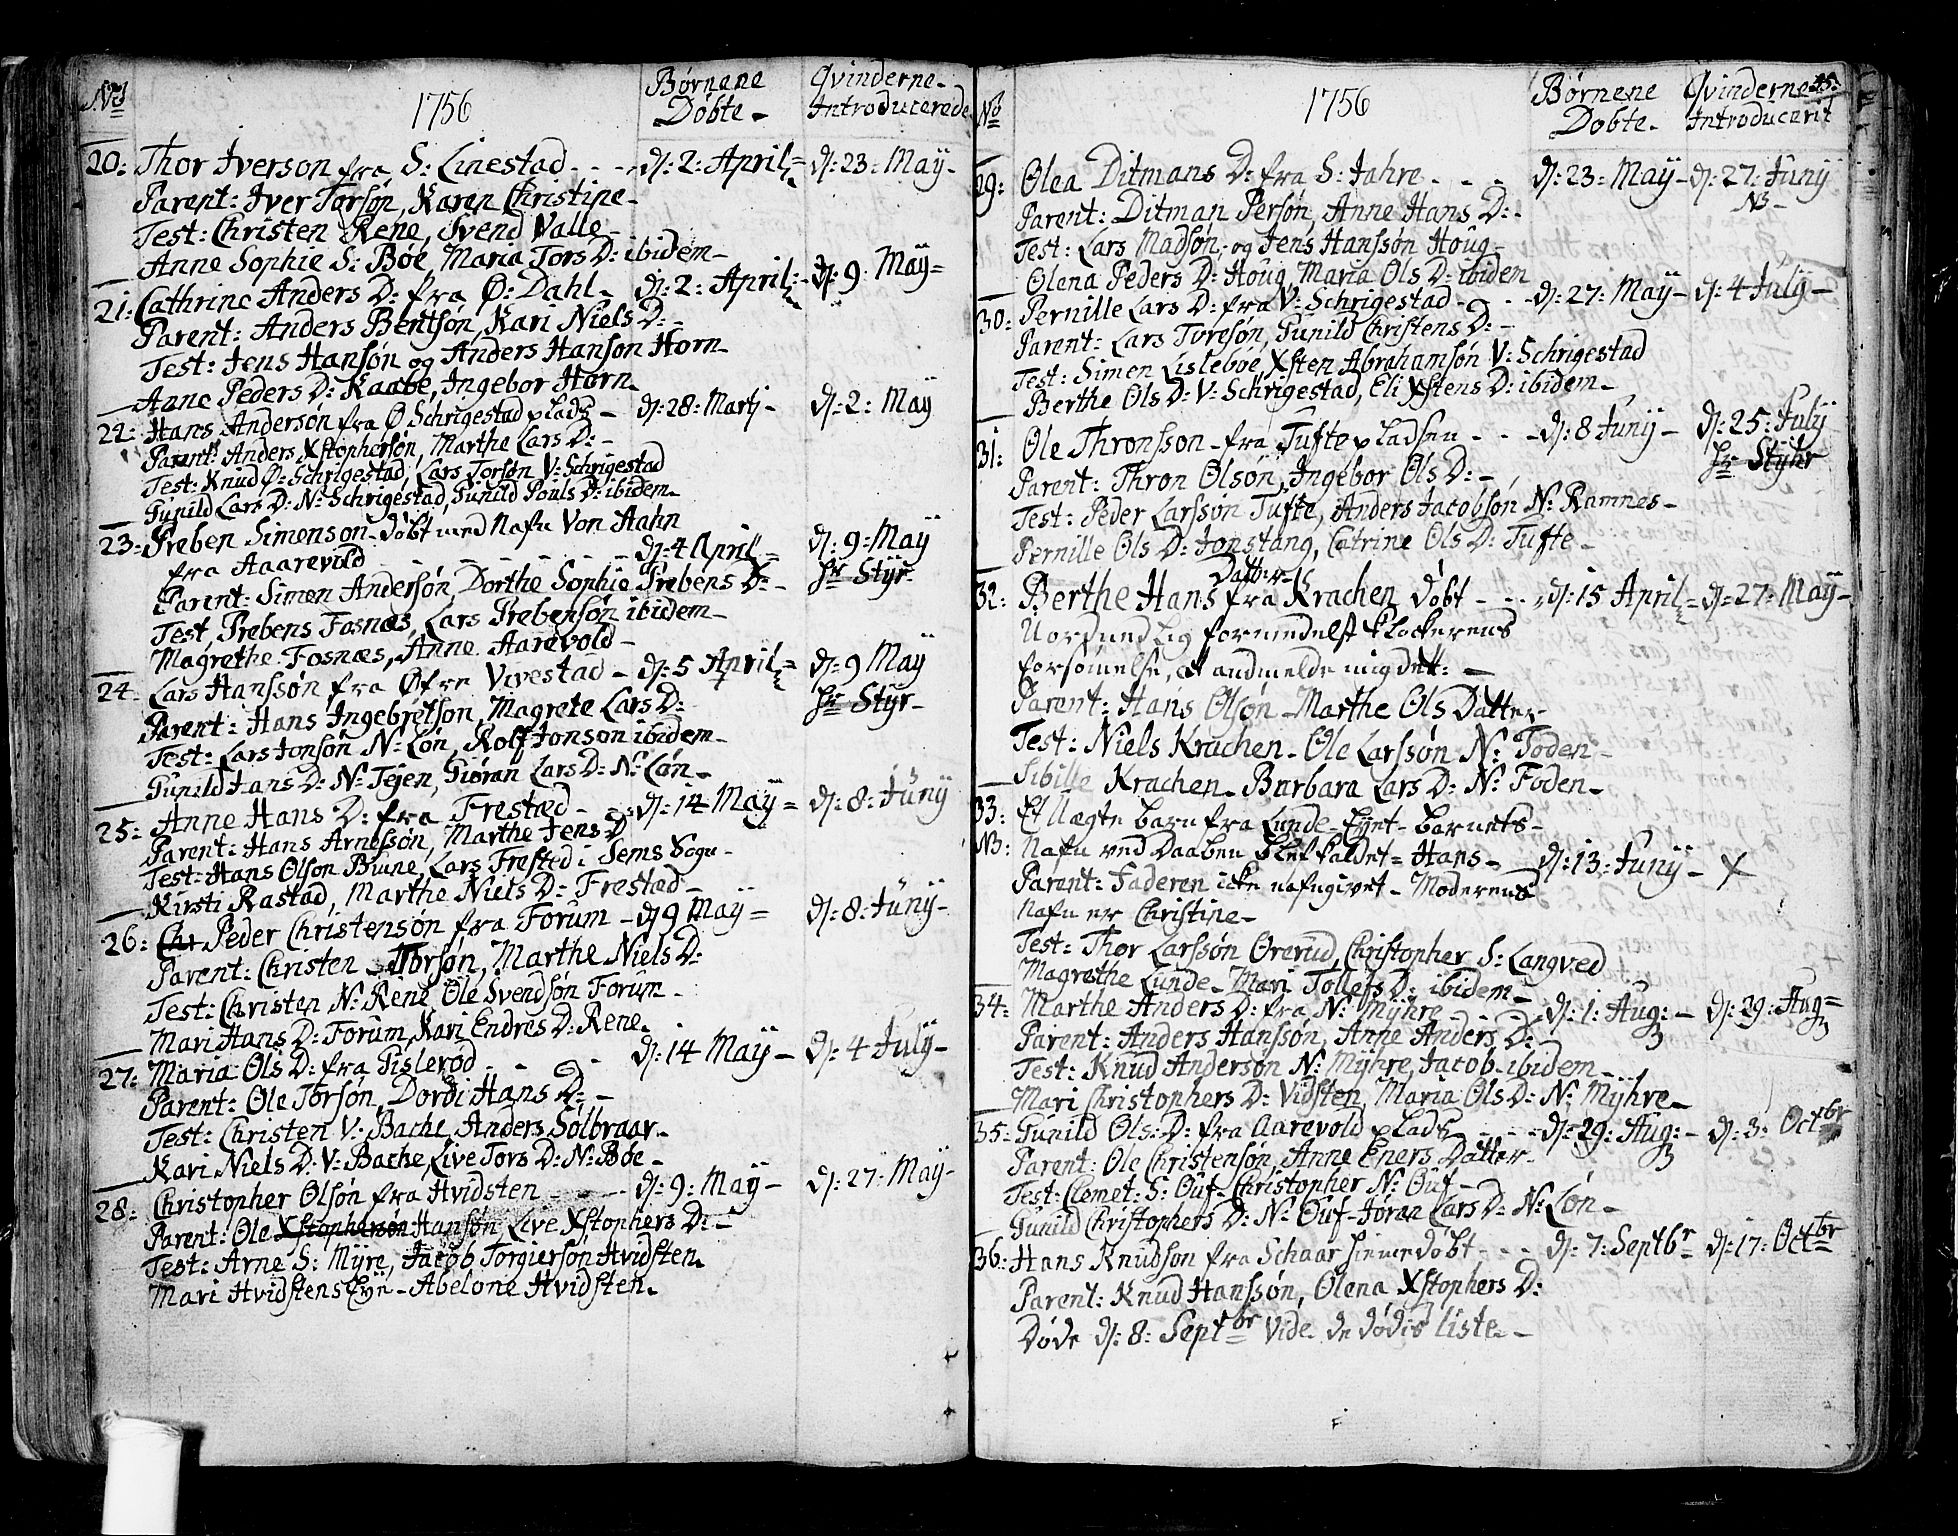 No
1756
Børnene
Døbte -
Qvinderne -
Introducerede
20: Thor Iverson fra S: Linestad - - - d: 2: April d: 23: Maÿ -
Parent: Iver Torsøn, Karen Christine -
Test: Christen Rene, Svend Valle -
Anne Sophie S: Bøe, Maria Tors D: ibidem -
21: Cathrine Anders D: fra Ø: Dahl - d: 2: April - d: 9: Maÿ =
Parent: Anders Bentsøn, Kari Niels D: -
Test: Jens Hansøn og Anders Hanson Horn -
Anne Peders D: Kaabe, Ingebor Horn.
22: Hans Andersøn fra Ø Schrigestad plads - d: 28: Martj - d: 2: Maÿ
Parent: Anders Xstophersøn, Marthe Lars D: -
Test: Knud Ø: Schrigestad, Lars Torsøn V: Schrigestad
Gunild Lars D: N: Schrigestad, Gunild Pouls D: ibidem -
23: Preben Simonson - døbt med Nafn Von Aahn
fra Aaarevold - - - - d: 4 April = d: 9: Maÿ
Parent: Simen Andersøn, Dorthe Sophie Prebens D: - Hr Stÿr -
Test, Prebens Fosnæs, Lars Prebensøn ibidem -
Magrethe Fosnæs, Anne Aarevold -
24: Lars Hanssøn fra Øfre Vivestad - d: 5 April = d: 9 Maÿ
Parent: Hans Ingebretson, Magrete Lars D: Hr Stÿr -
Test: Lars Jonsøn N: Løn, Rolf Jonson ibidem -
Gunild Hans D: N: Tejen, Giøran Lars D: N: Løn -
25: Anne Hans D: fra Frestæd - - d: 14 Maÿ = d: 8: Junÿ
Parent: Hans Arnessøn, Marthe Jens D
Test: Hans Olson Buune, Lars Frested i Sems Sogn -
Kirsti Rastad, Marthe Niels D: Frestæd -
26: Chr Peder Christensøn fra Forum - d 9 Maÿ = d: 8: Junÿ -
Parent: Christen Torsøn, Marthe Niels D:
Test: Christen N: Rene, Ole Svendsøn Forum -
Mari Hans D: Forum, Kari Endres D: Rene.
27: Maria Ols D: fra Gislerød - - - d: 14 Maÿ - d: 4 Julÿ -
Parent: Ole Torsøn, Dordi Hans D: -
Test: Christen V: Bache, Anders Solbraar -
Kari Niels D: V: Bache, Live Tors D: N: Bøe -
28: Christopher Olsøn fra Hvidsten - - - d: 9: Maÿ - d: 27: Maÿ -
Parent: Ole Xstophersøn Hansøn, Live Xstophers D: -
Test: Arne S: Mÿre, Jacob Torgiersøn Hvidsten.
Mari Hvidstens Eÿe - Abelone Hvidsten.
No
1756
Børnene
Døbte -
Qvinderne
Introducerit
45.
29: Olea Ditmans D: fra S: Jahre - - - d: 23: Maÿ - d: 27: Junÿ
Parent: Ditman Persøn, Anne Hans D: - NB -
Test: Lars Madsøn, og Jens Hanssøn Houg -
Olena Peders D: Houg, Maria Ols D: ibidem
30: Pernille Lars D: fra V: Schrigestad - - - d: 27: Maÿ - d: 4 Julÿ -
Parent: Lars Toresøn, Gunild Christens D: -
Test: Simen Lisleboe, Xsten Abrahamsøn V: Schrigestad
Berthe Ols D: V: Schrigestad, Eli Xstens D: ibidem -
31: Ole Thronsson - fra Tufte pladsen - - - d: 8 Junÿ - d: 25: Julÿ
Parent: Thron Olson, Ingebor Ols D: - Hr Stÿhr
Test: Peder Larssøn Tufte, Anders Jacobsøn N: Ramnes -
Pernille Ols D: Jonstang, Catrine Ols D: Tufte -
Datter
32: Berthe Hans fra Krachen døbt - - d: 15 April = d: 27: Maÿ -
Uordundlig formedelst klockerens
forsømelse, at andmelde mig det: -
Parent: Hans Olsøn - Marthe Ols Datter
Test: Niels Krachen - Ole Larssøn N: Foden -
Sibille Krachen - Barbara Lars D: N: Foden -
33: Et Uægte barn fra Lunde - Eÿet - barnets -
NB: Nafn ved Daaben blef kaldet = Hans - d: 13: Junÿ - X
Parent: Faderen icke nafngivet - Moderens
Nafn er Christine -
Test: Thor Larssøn Ørerud, Christopher S: Langved
Magrethe Lunde - Mari Tollefs D: ibidem -
34: Marthe Anders D: fra N: Mÿhre - - - d: 1: Aug: - d: 29: Aug =
Parent: Anders Hanssøn, Anne Anders D: -
Test: Knud Andersøn N: Mÿhre, Jacob - ibidem -
Mari Christophers D: Vidsten, Maria Ols D: N: Mÿhre -
35: Gunild Ols: D: fra Aarevold plads - - - d: 29: Aug: - d: 3: Octbr
Parent: Ole Christensøn, Anne Eners Datter -
Test: Clemet: S: Ouf - Christopher N: Ouf -
Gunild Christophers D: N: Ouf - Jøran Lars D: N: Løn -
36: Hans Knudson fra Schaar hiemedøbt - - - d: 7: Septbr d: 17: Octbr
Parent: Knud Hanssøn, Olena Xstophers D:
Døde d: 8: Septbr Vide de dødis liste -